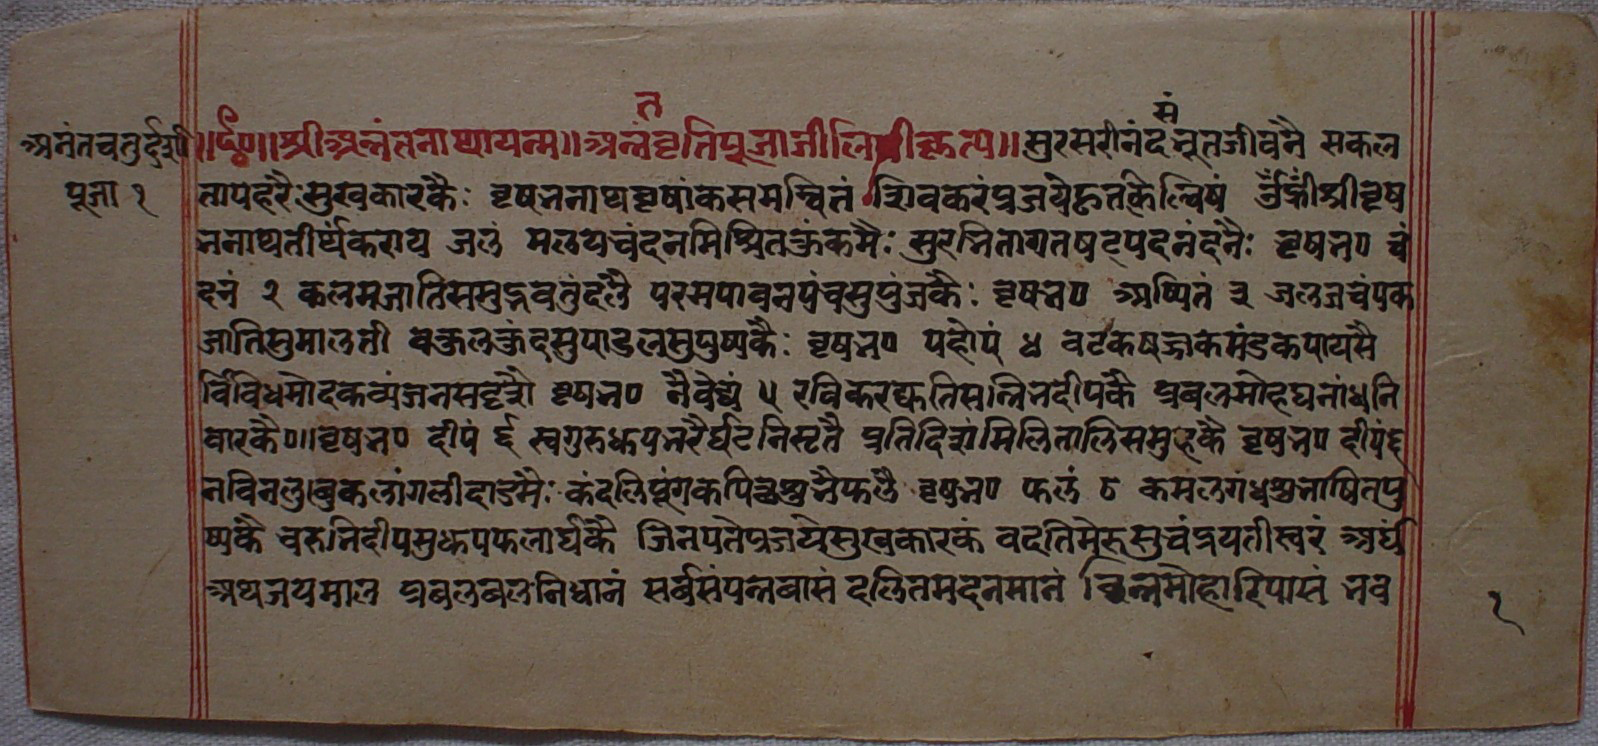 अनंतचतुर्दशी
पूजा १
त
सं
॥ꣽ॥ श्रीअनंतनाथायनमः॥ अनंतवृतिपूजाजीलि कृत्य॥ सुरसरीनंद नूतजीवनै सकल
तापहरै सुखकारकैः वृषभनाथवृषांकसमन्वितं शिवकरंप्रजये किल्विषं ॐह्रींश्रीवृष
भनाथतीर्थंकराय जलं मलयचंदनमिश्रितकुंकमैः सुरभितागतषट्पदनंदनैः वृषभ० चं
दनं २ कलमजातिससुद्भवतुंदलै परमपावनपंचसुपुंजकैः वृषभ० अष्यितं ३ जलजचंपक
जातिसुमालती बकुलकुंदसुपाडलसुपुष्पकैः वृषभ० पहौपं ४ वटकषज्जकमंडकपायसै
र्विविधमोदकव्यंजनसदृशै वृषभ० नैवेद्यं ५ रविकर सन्निभदीपकै प्रबलमोहघनांधनि
वारकै०॥ वृषभ० दीपं ६ स्वगुरुधूपभरैर्घटनिसृतै प्रतिदिशंमिलितालिसमुहकै वृषभ० दीपं६
नविनलु लांगलीदाडमैः कंदलिपूंगकपिछशुभैफलै वृषभ० फलं ८ कमलगध पु
ष्पकै चरुभिदीपसुधूपफलार्घकै जिनपतेप्रजयेसुखकारकं वदतिमेरुसुचंद्रयतीस्वरं अर्घं
अथजयमाल प्रबलबलनिधानं सर्बसंपन्नवासं दलितमदनमानं छिन्नमोहारिपासं भव
१